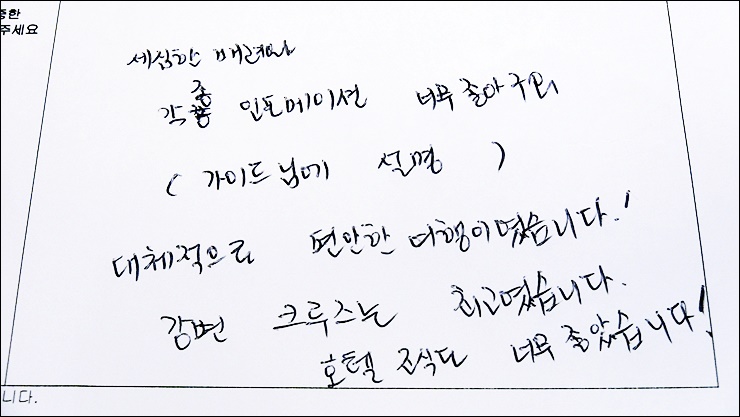 중한
주세요
세심한 배려와
각종 인포메이션 너무 좋아구요
( 가이드님에 설명 )
대체적으로 편안한 여행이였습니다.!
강변 크루즈는 최고였습니다.
호텔 조식도 너무 좋았습니다!
니다.